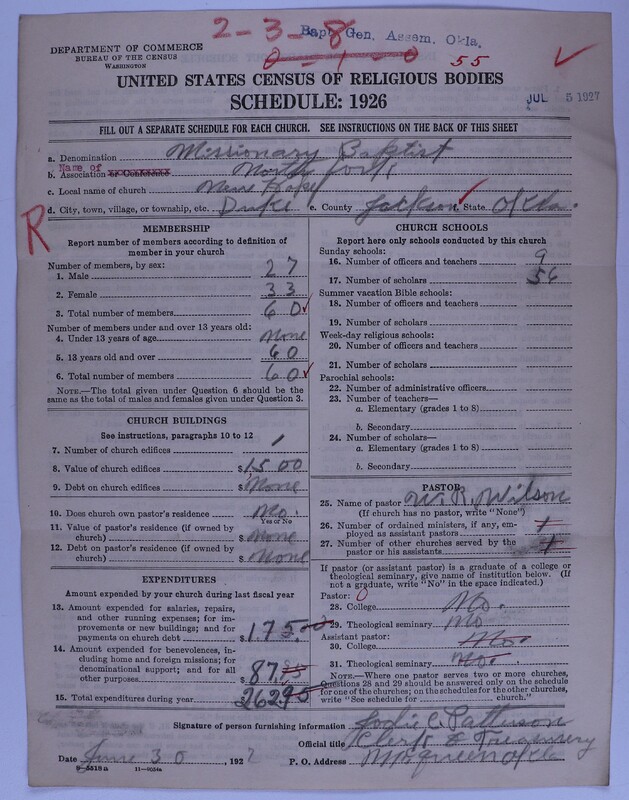 2-3-8
Bap. Gen. Assem. Okla.
0-1-0
55
DEPARTMENT OF COMMERCE
BUREAU OF THE CENSUS
WASHINGTON
UNITED STATES CENSUS OF RELIGIOUS BODIES
SCHEDULE: 1926
JUL 5 1927
FILL OUT A SEPARATE SCHEDULE FOR EACH CHURCH. SEE INSTRUCTIONS ON THE BACK OF THIS SHEET
a. Denomination Missionary Baptist
b. Name of Association North fork
c. Local name of church New Hope
d. City, town, village, or township, etc. Duke e. County Jackson State Okla.
R
MEMBERSHIP
Report number of members according to definition of
member in your church
Number of members, by sex:
1. Male 27
2. Female 33
3. Total number of members 60
Number of members under and over 13 years old:
4. Under 13 years of age None
5. 13 years old and over 60
6. Total number of members 60
NOTE.—The total given under Question 6 should be the
same as the total of males and females given under Question 3.
CHURCH BUILDINGS
See instructions, paragraphs 10 to 12
7. Number of church edifices 1
8. Value of church edifices $1500
9. Debt on church edifices $None
10. Does church own pastor's residence No.
Yes or No
11. Value of pastor's residence (if owned by
church) $None
12. Debt on pastor's residence (if owned by
church) $None
EXPENDITURES
Amount expended by your church during last fiscal year
13. Amount expended for salaries, repairs,
and other running expenses; for im-
provements or new buildings; and for
payments on church debt $175.00
14. Amount expended for benevolences, in-
cluding home and foreign missions; for
denominational support; and for all
other purposes $87.95
15. Total expenditures during year 262.95
CHURCH SCHOOLS
Report here only schools conducted by this church
Sunday schools:
16. Number of officers and teachers 9
17. Number of scholars 56
Summer vacation Bible schools:
18. Number of officers and teachers
19. Number of scholars
Week-day religious schools:
20. Number of officers and teachers
21. Number of scholars
Parochial schools:
22. Number of administrative officers
23. Number of teachers—
a. Elementary (grades 1 to 8)
b. Secondary
24. Number of scholars—
a. Elementary (grades 1 to 8)
b. Secondary
PASTOR
25. Name of pastor W. R. Wilson
(If church has no pastor, write "None")
26. Number of ordained ministers, if any, em-
ployed as assistant pastors
27. Number of other churches served by the
pastor or his assistants
If pastor (or assistant pastor) is a graduate of a college or
theological seminary, give name of institution below. (If
not a graduate, write "No" in the space indicated.)
Pastor: 0
28. College No.
29. Theological seminary No
Assistant pastor:
30. College No.
31. Theological seminary No.
NOTE.—Where one pastor serves two or more churches,
Questions 28 and 29 should be answered only on the schedule
for one of the churches; on the schedules for the other churches,
write "See schedule for church."
Signature of person furnishing information Jodie C. Patterson
Official title Clerk &
Date June 30, 1927 P. O. Address McQueen Okla
8-5518a 11-9054a